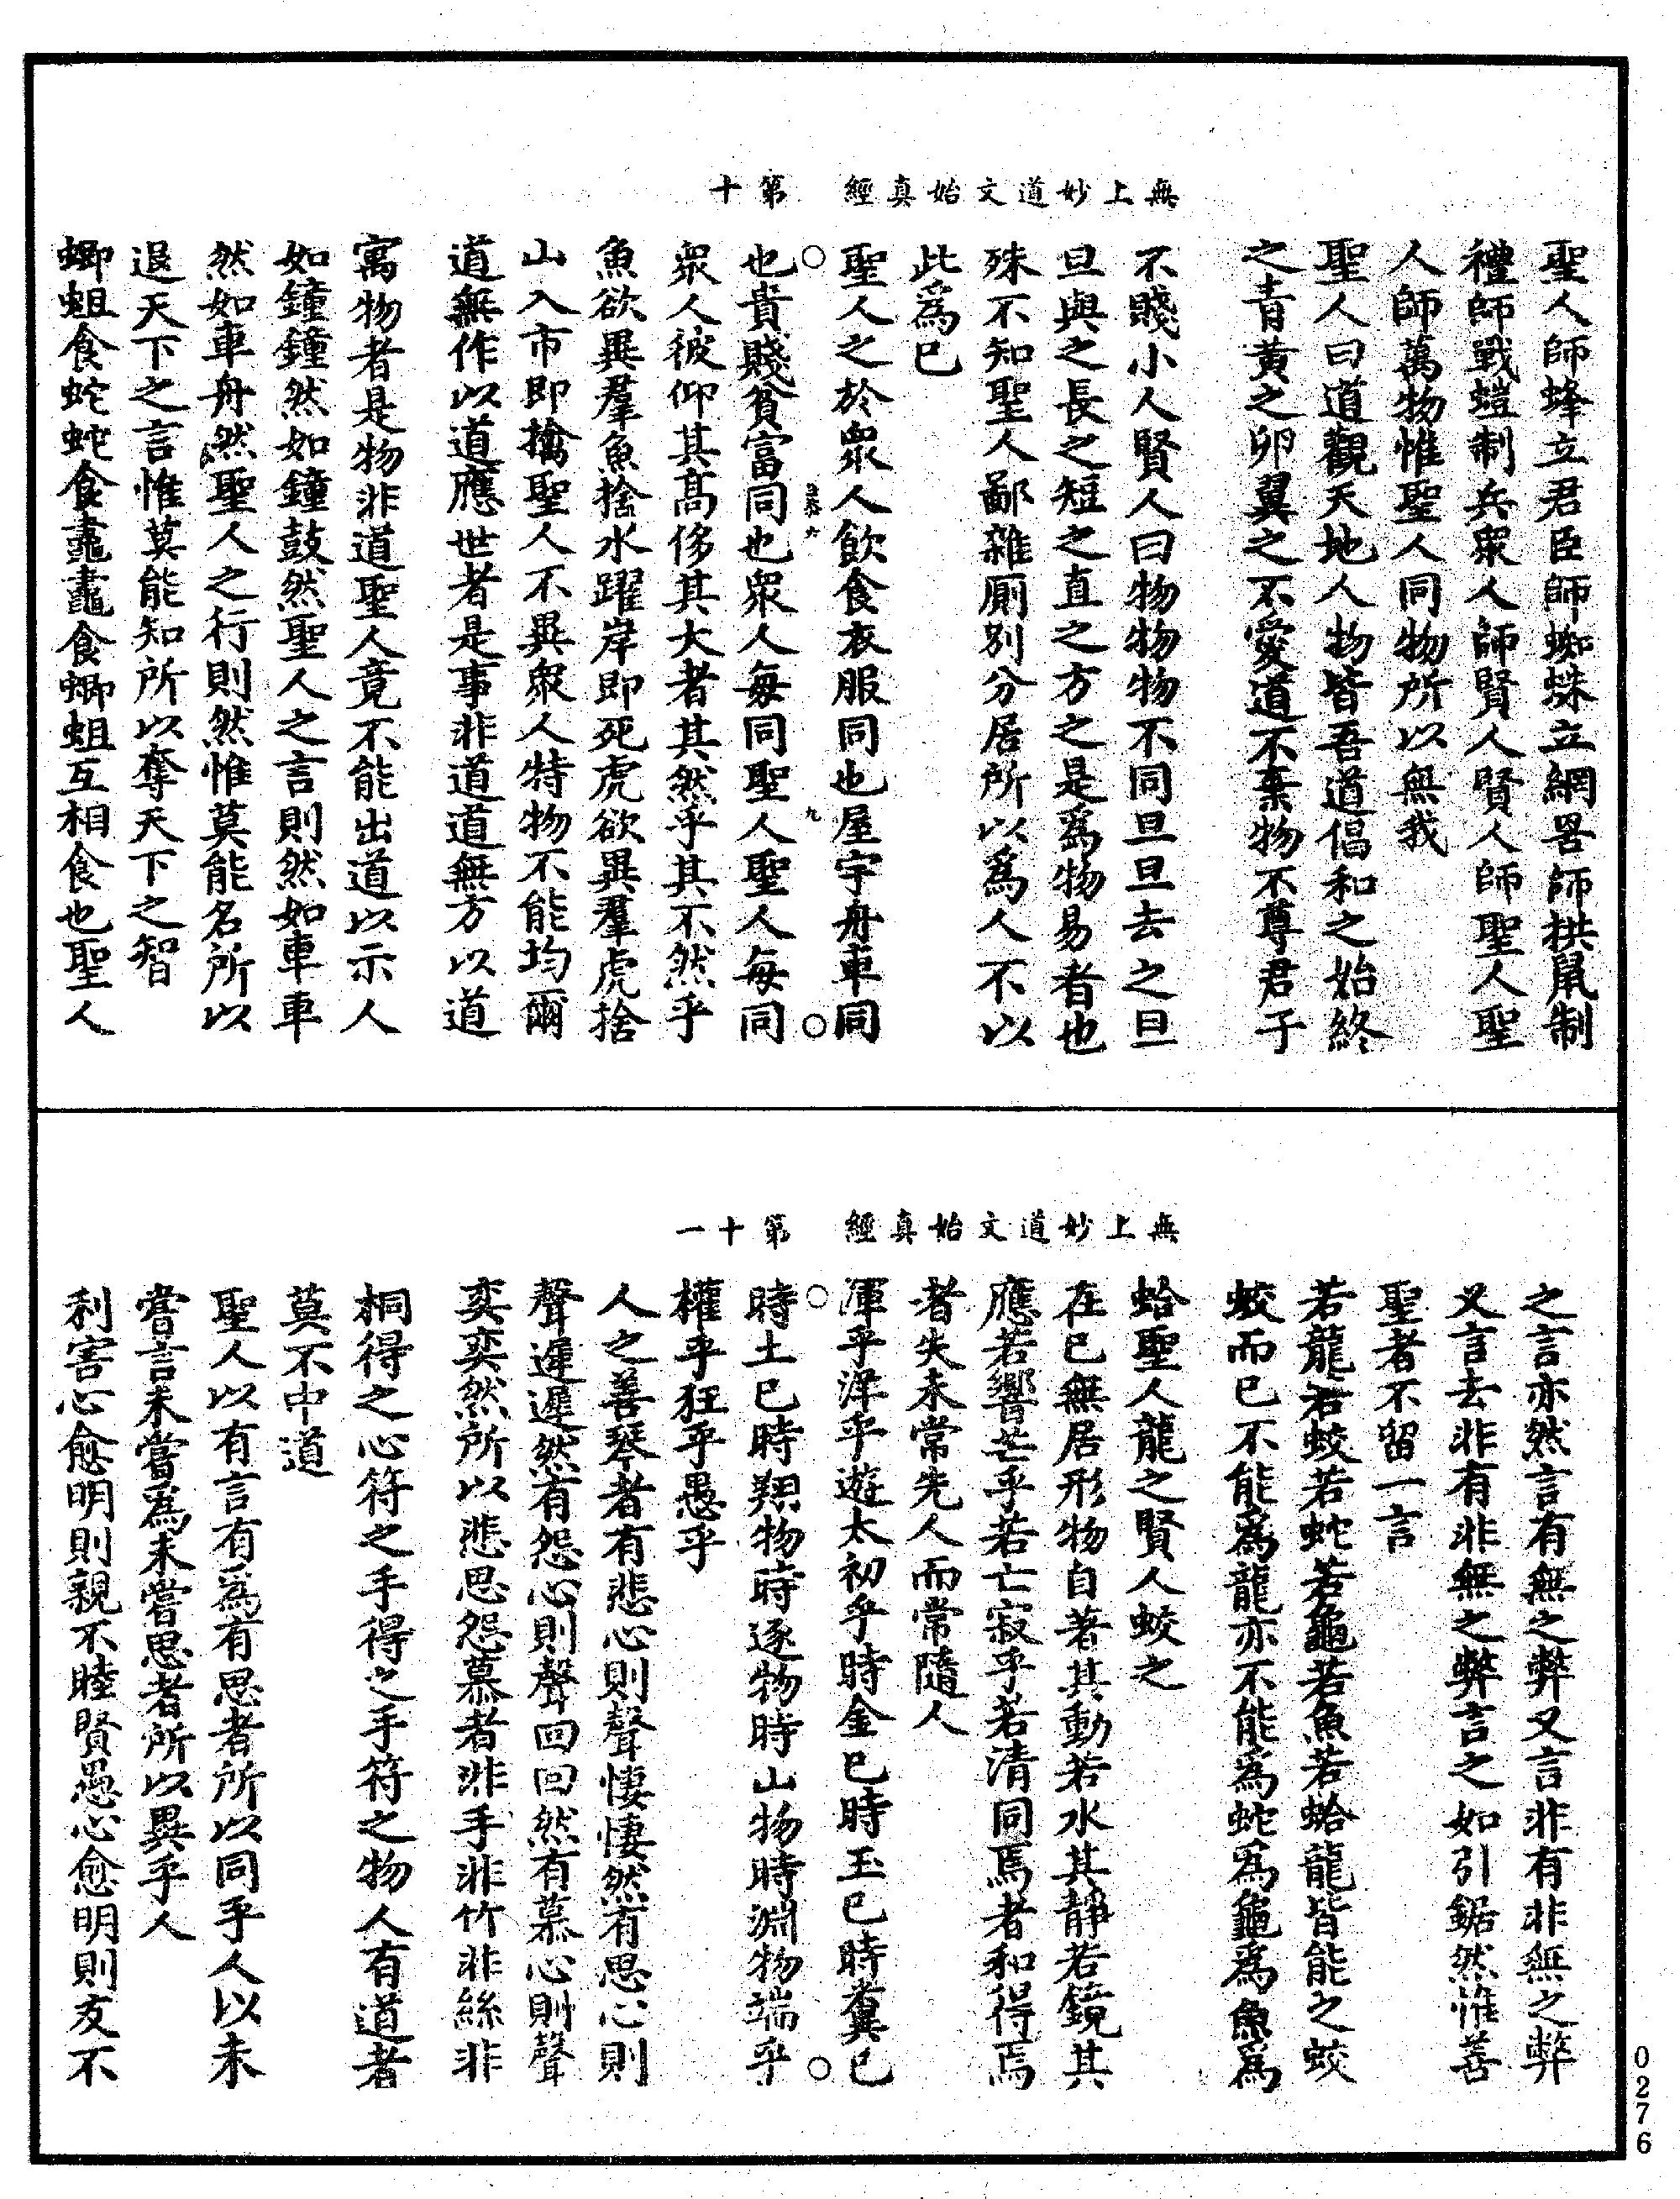 無上妙道文始真經　第十
聖人師蜂立君臣師蜘蛛立網罟師拱鼠制
禮師戰螘制兵衆人師賢人賢人師聖人聖
人師萬物惟聖人同物所以無我
聖人曰道觀天地人物皆吾道倡和之始終
之青黃之卵翼之不愛道不棄物不尊君子
不賤小人賢人曰物物物不同旦旦去之旦
旦與之長之短之直之方之是爲物易者也
殊不知聖人鄙雜厠別分居所以爲人不以
此爲已
聖人之於衆人飲食衣服同也屋宇舟車同
也貴賤貧富同也衆人每同聖人聖人每同
衆人彼仰其髙侈其大者其然乎其不然乎
魚欲異羣魚捨水躍岸即死虎欲異羣虎捨
山入市即擒聖人不異衆人特物不能均爾
道無作以道應世者是事非道道無方以道
寓物者是物非道聖人竟不能出道以示人
如鐘鐘然如鐘鼓然聖人之言則然如車車
然如車舟然聖人之行則然惟莫能名所以
退天下之言惟莫能知所以奪天下之智
蝍蛆食蛇蛇食鼃鼃食蝍蛆互相食也聖人
無上妙道文始真經　第十一
之言亦然言有無之弊又言非有非無之弊
又言去非有非無之弊言之如引鋸然惟善
聖者不留一言
若龍若蛟若蛇若龜若魚若蛤龍皆能之蛟
蛟而已不能爲龍亦不能爲蛇爲龜爲魚爲
蛤聖人龍之賢人蛟之
在已無居形物自著其動若水其靜若鏡其
應若響芒乎若亡寂乎若清同焉者和得焉
者失未常先人而常隨人
渾乎洋乎遊太初乎時金已時玉已時糞已
時土已時翔物時逐物時山物時淵物端乎
權乎狂乎愚乎
人之善琴者有悲心則聲悽悽然有思心則
聲遲遲然有怨心則聲回回然有慕心則聲
奕奕然所以悲思怨慕者非手非竹非絲非
桐得之心符之手得之手符之物人有道者
莫不中道
聖人以有言有爲有思者所以同乎人以未
嘗言未嘗爲未嘗思者所以異乎人
利害心愈明則親不睦賢愚心愈明則友不
0276